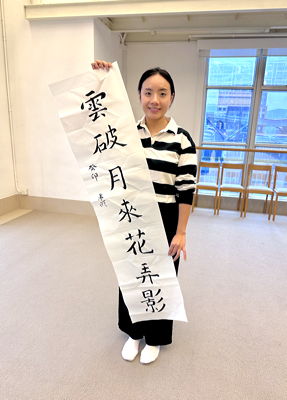 雲破月來花弄影
癸卯